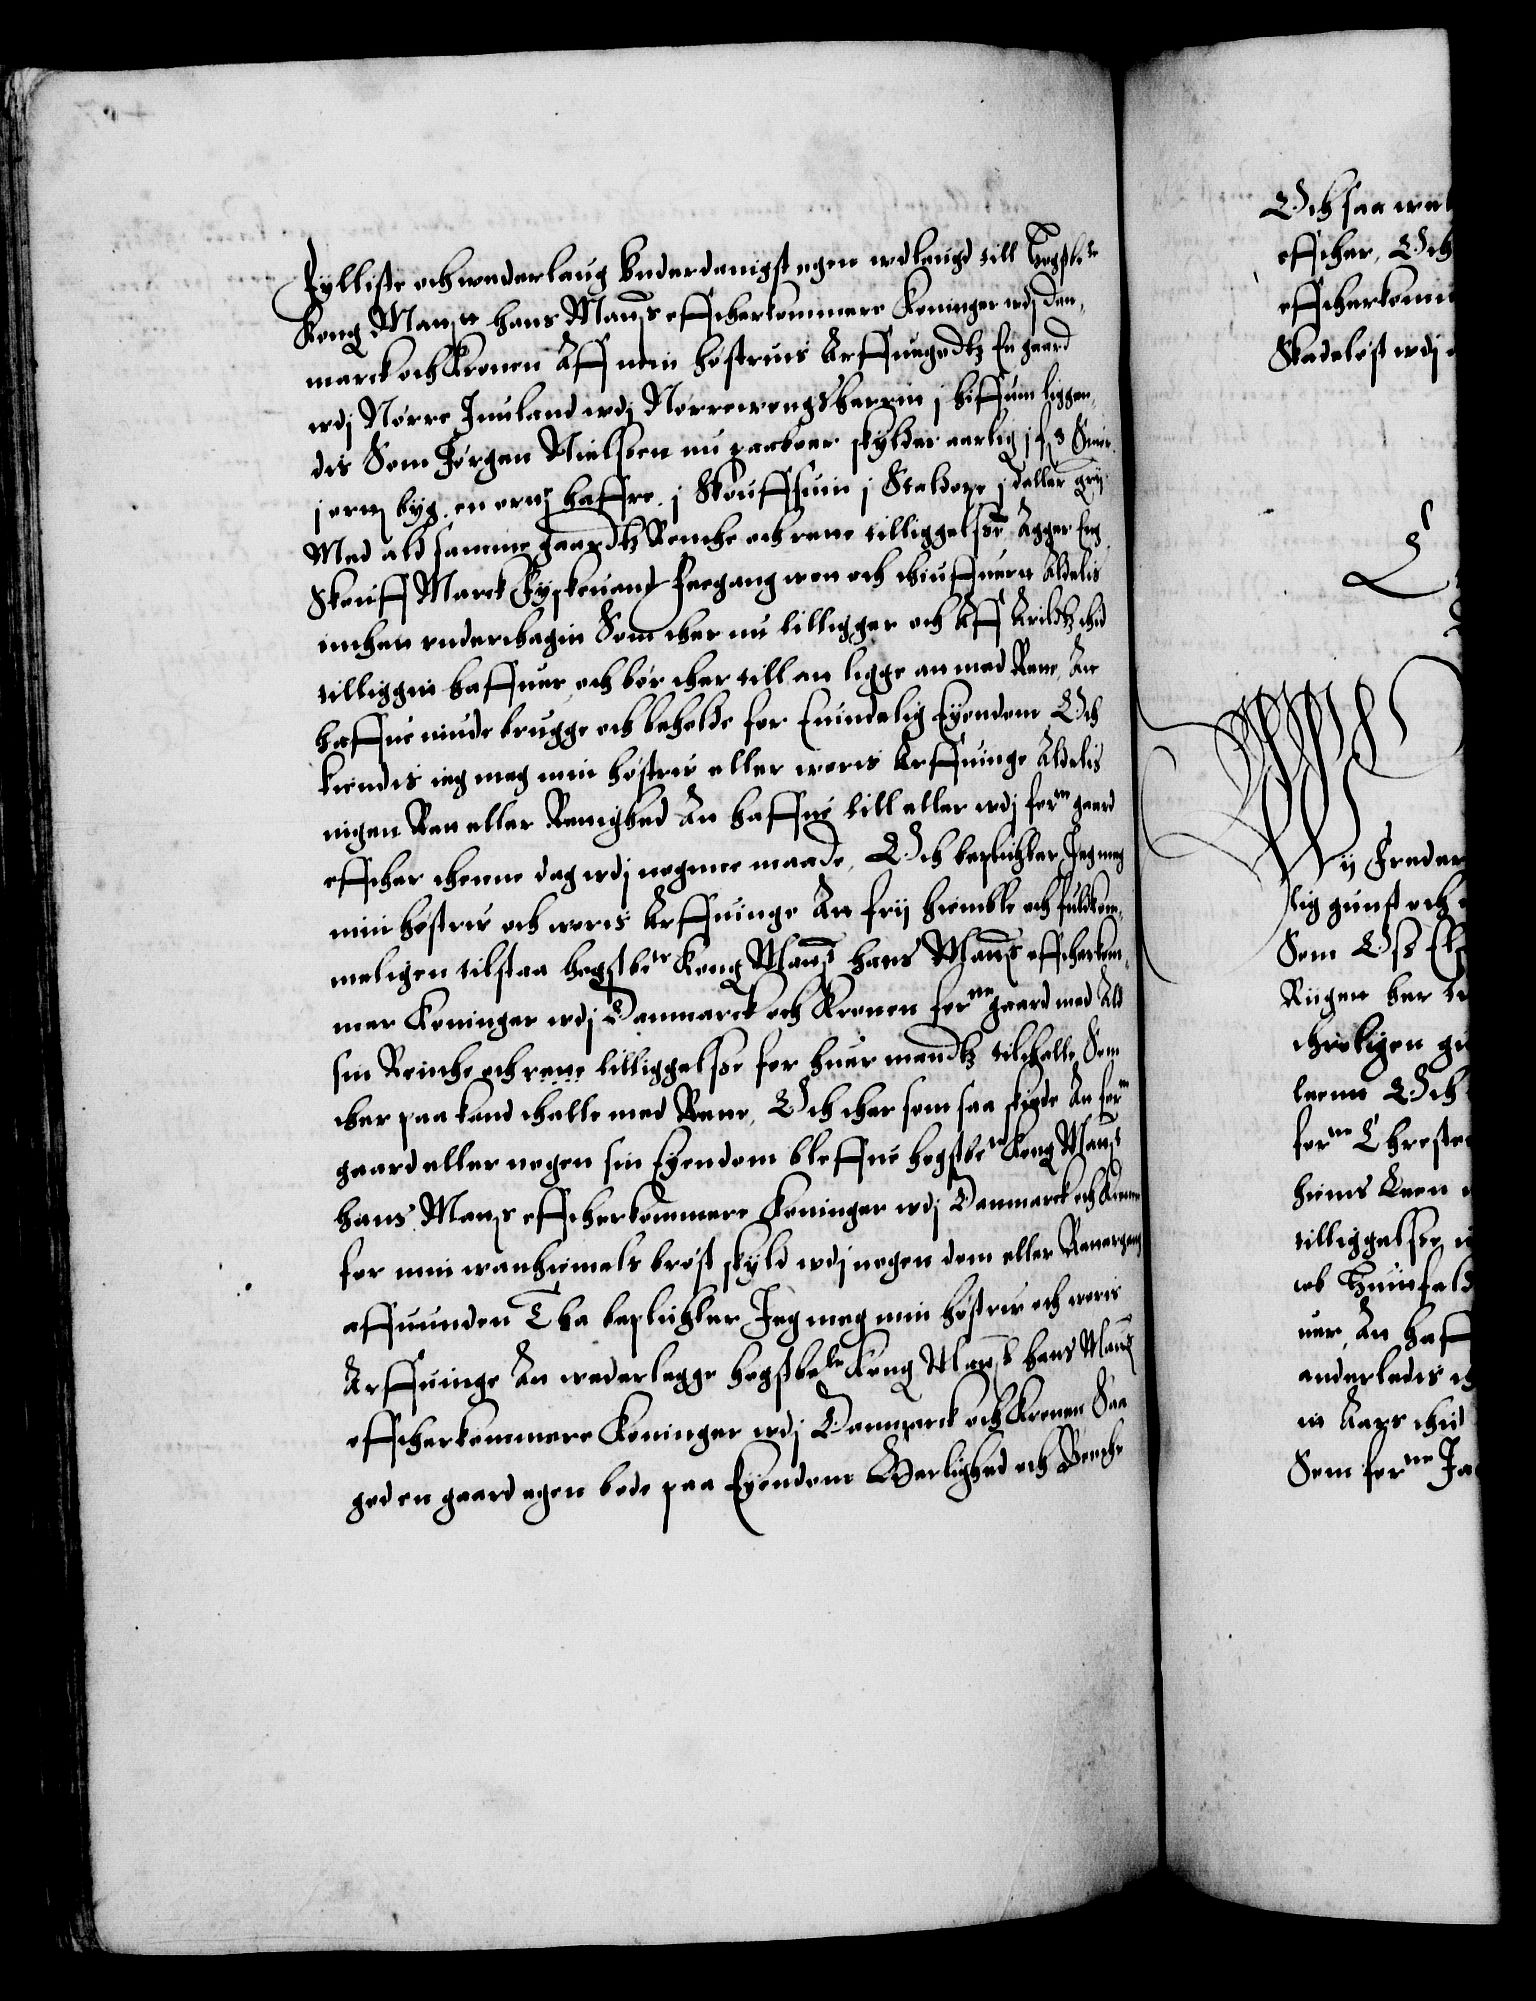 fylliste och wederlaug Vnderdanigst igen wdlaugd till Høgstbete
Kong Mayst hans Mayts effterkommere Koninger wdj Dan,
marck och Kronen Aff min høstruis Arffuegodtz En gaard
wdj Nørre Jutland wdj Nørrewongsherrin j biffum liggen,
dis Som Jørgen Nielssen nu paaboer skylder aarlig j
j ortug byg en ortug haffre, j Skouffsuin j j daller
Med ald samme gaardtz Rente och rette tilliggelsse Agger Eng
Skouff Marck Fyskeuand Feegang wot och thiuft uert Aldelis
inthet undertagit Som ther nu tilligger och Aff Arildtz thid
tilliggit haffuer och bør ther till at ligge at med Rette, At
haffue niude brugge och beholde for Euindelig Eyendom Och
kiendis ieg meg min høstrue eller woris Arffuinge Aldelis
ingen Ret eller Rettighed At haffue till eller wdj forne gaard
effter thenne dag wdj nogenn maade, Och beplichter Jeg meg
min høstrue och woris Arffuinge At frij hiemble och fuldkom,
meligen tilstaa høgstbete Kong Mayst hans Mayts effterkom,
mer Koninger wdj Danmarck och Kronen forne gaard med Ald
sin Reinthe och rette tilliggelsse for huer mandtz tiltalle, Som
ther paa kand thalle med Rette, Och ther som saa skiede At forne
gaard eller nogen sin Eyendom bleffue høgstbete Kong Mayst
hans Mayts effterkommere Koninger wdj Danmarck och Kronen
for min wanhiemels brøst skyld wdj nogen dom eller Rettergang
affuunden Tha beplichter Jeg meg min høstrue och woris
Arffuinge At wederlegge høgstbete Kong Mayst hans Mayts
effterkommere Koninger wdj Danmarck och Kronen Saa
god en gaard igen bode paa Eyendom Herlighed och Renthe
Och saa wel
effther, Och
effterkomme
Skadeløst wdj
Wij Freder
lig gunst och
Som Oss Els
Riigen her
leenn Och
forne Chresten
hiems Leen
tilliggelsse
uer, At haff
anderledis
Som forne Ja